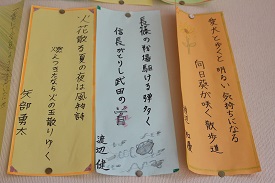 愛犬と歩くと明るい気持ちになる
向日葵が咲く散歩道
長篠の戦場駆ける弾多く
信長がとりし武田の首
渡辺 健
火花散る夏の夜は風物詩
燃えつきたなら火の玉散りゆく
矢部 勇太